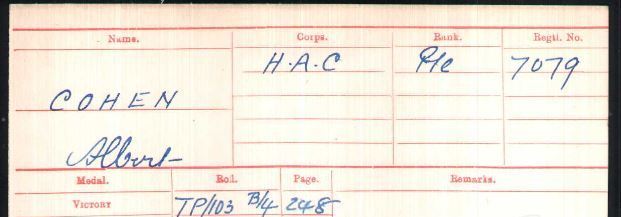 Name. Corps. Rank. Regtl. No.
H.A.C Pte 7079
COHEN
Albert
Medal. Roll. Page. Remarks.
VICTORY TP/103 B/4 248